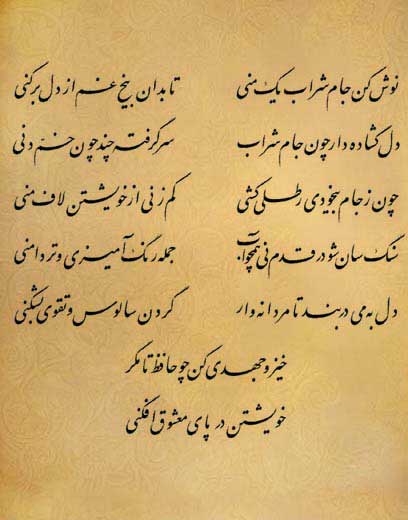 نوش کن جام شراب یک منی تا بدان بیخ غم از دل برکنی
دل گشاده دار چون جام شراب سر گرفته چند چون خم دنی
چون ز جام بیخودی رطلی کشی کم زنی از خویشتن لاف منی
سنگ سان شو در قدم نی همچو آب جمله رنگ آمیزی و تر دامنی
دل به می دربند تا مردانه وار گردن سالوس و تقوی بشکنی
خیز و جهدی کن چو حافظ تا مگر
خویشتن در پای معشوق افکنی